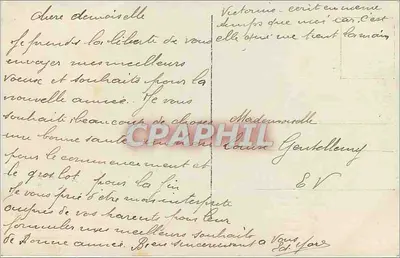 chere demoiselle
Je prends la liberté de vous
envoyer mes meilleurs
voeux et souhaits pour la
nouvelle année. Je vous
souhaite beaucoup de choses
une bonne santé
pour le commencement et
le gros lot pour la fin
Je vous prie d'être mon interprete
aupres de vos parents pour leur
formuler mes meilleurs souhaits
de Bonne année. Bien sincerement a vous
Victorine écrit en même
temps que moi car c'est
elle qui me tient la main
Mademoiselle
Louise
E V
CPARPHIL